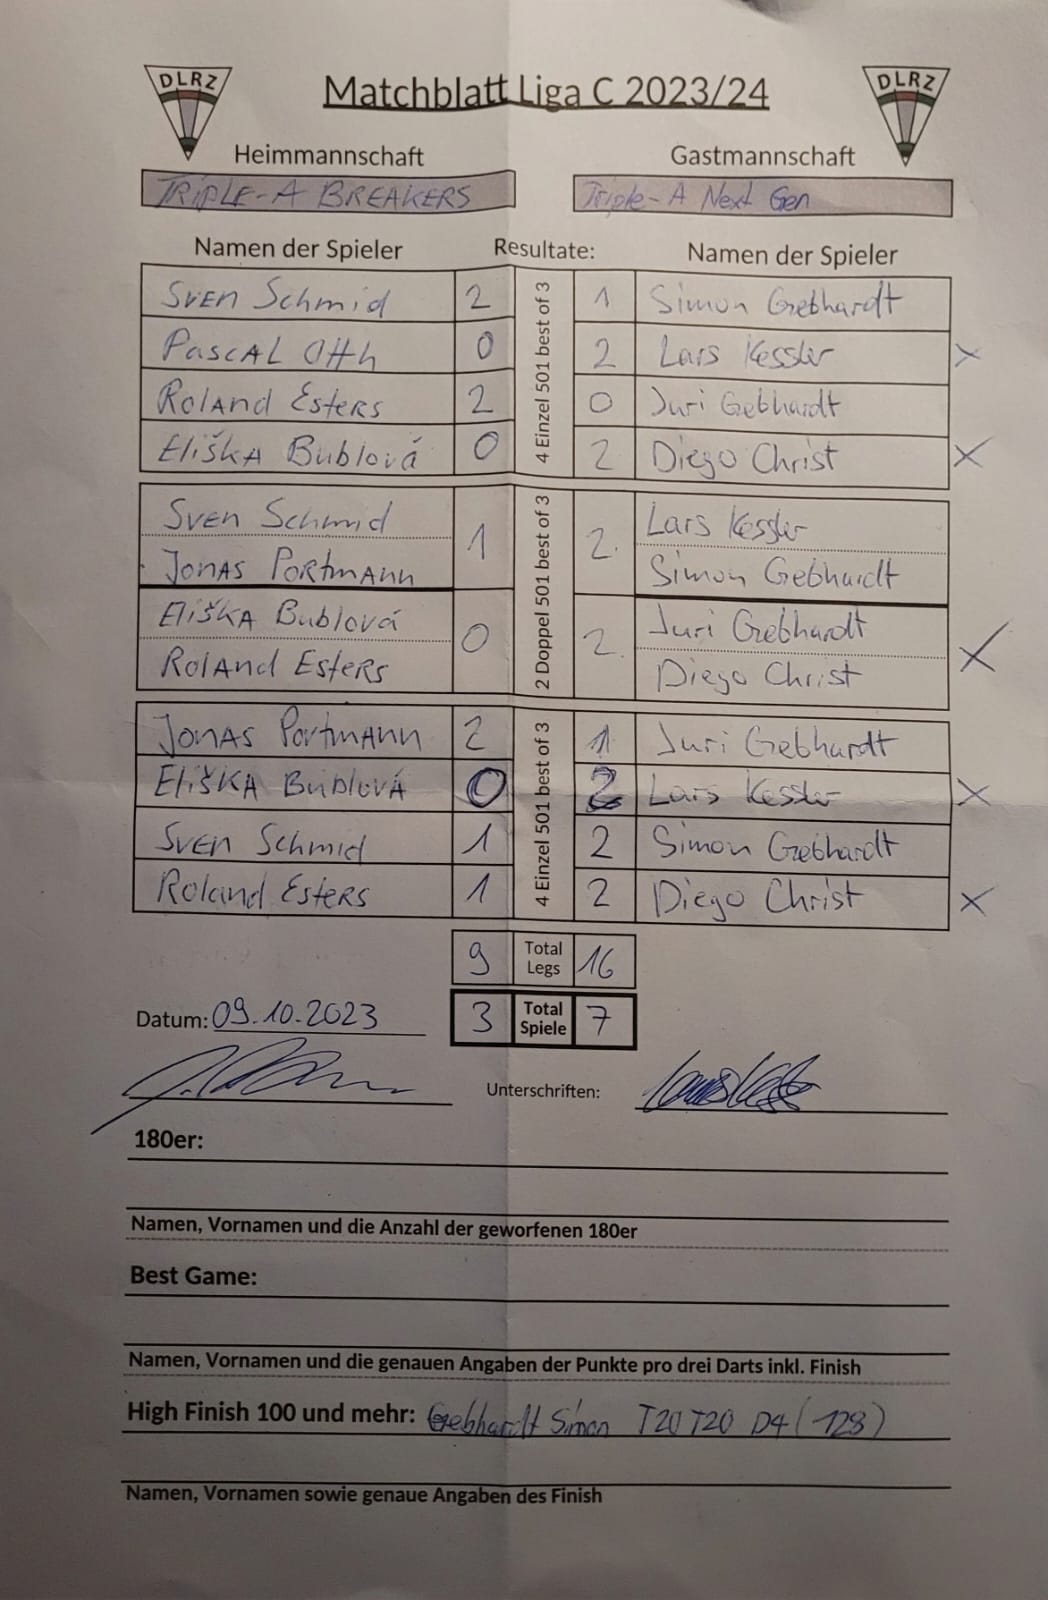 DLRZ Matchblatt Liga C 2023/24 DLRZ
Heimmannschaft Gastmannschaft
TRIPLE-A BREAKERS Triple-A Next Gen
Namen der Spieler Resultate: Namen der Spieler
4 Einzel 501 best of 3
Sven Schmid 2 1 Simon Gebhardt
Pascal Otth 0 2 Lars Kessler X
Roland Esters 2 0 Juri Gebhardt
Eliška Bublová 0 2 Diego Christ X
2 Doppel 501 best of 3
Sven Schmid 1 2. Lars Kessler
Jonas Portmann Simon Gebhardt
Eliška Bublová 0 2. Juri Gebhardt X
Roland Esters Diego Christ
4 Einzel 501 best of 3
Jonas Portmann 2 1 Juri Gebhardt
Eliška Bublová 0 2 Lars Kessler X
Sven Schmid 1 2 Simon Gebhardt
Roland Esters 1 2 Diego Christ X
9 Total Legs 16
Datum: 09.10.2023 3 Total Spiele 7
Unterschriften:
180er:
Namen, Vornamen und die Anzahl der geworfenen 180er
Best Game:
Namen, Vornamen und die genauen Angaben der Punkte pro drei Darts inkl. Finish
High Finish 100 und mehr: Gebhardt Simon T20 T20 D4 (128)
Namen, Vornamen sowie genaue Angaben des Finish